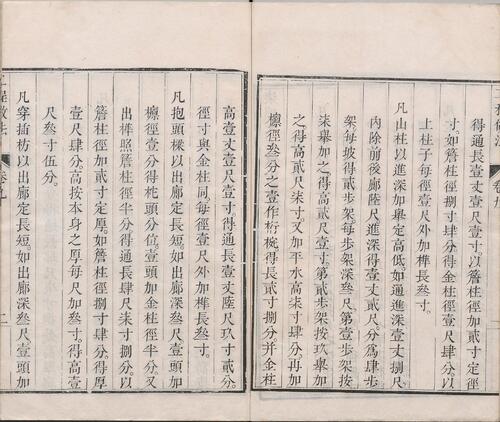 得通長壹丈壹尺壹寸。以簷柱徑加貳寸定徑
寸。如簷柱徑捌寸肆分。得金柱徑壹尺肆分。以
上柱子。每徑壹尺。外加榫長叁寸。
凡山柱以進深加舉定高低。如通進深壹丈捌尺。
內除前後廊陸尺。進深得壹丈貳尺。分爲肆步
架。每坡得貳步架。每步架深叁尺。第壹步架按
柒舉加之。得高貳尺壹寸。第貳步架按玖舉加
之。得高貳尺柒寸。又加平水高柒寸肆分。再加
檁徑叁分之壹作桁椀。得長貳寸捌分。并金柱
高壹丈壹尺壹寸。得通長壹丈陸尺玖寸貳分。
徑寸與金柱同。每徑壹尺。外加榫長叁寸。
凡抱頭樑以出廊定長短。如出廊深叁尺。壹頭加
檁徑壹分。得柁頭分位。壹頭加金柱徑半分。又
出榫照簷柱徑半分。得通長肆尺柒寸捌分。以
簷柱徑加貳寸定厚。如簷柱徑捌寸肆分。得厚
壹尺肆分。高按本身之厚。每尺加叁寸。得高壹
尺叁寸伍分。
凡穿插枋以出廊定長短。如出廊深叁尺。壹頭加
工程做法
卷九
二